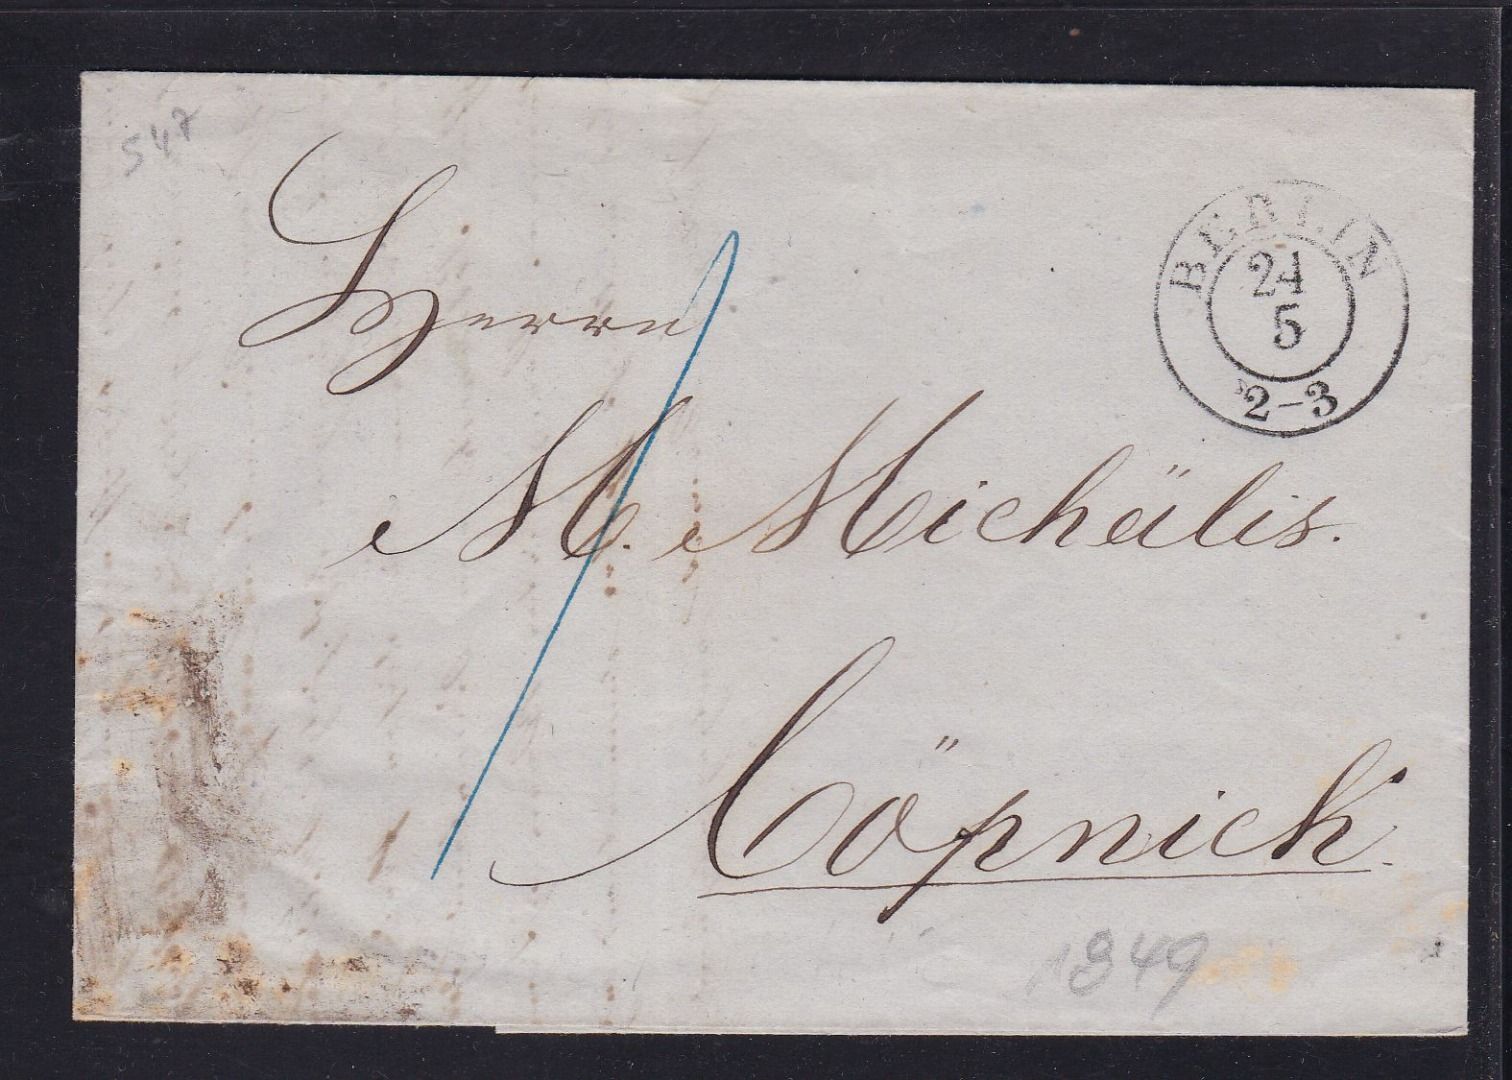 547
BERLIN
21
5
2-3
Herrn
M. Michälis.
Cöpnick.
1849